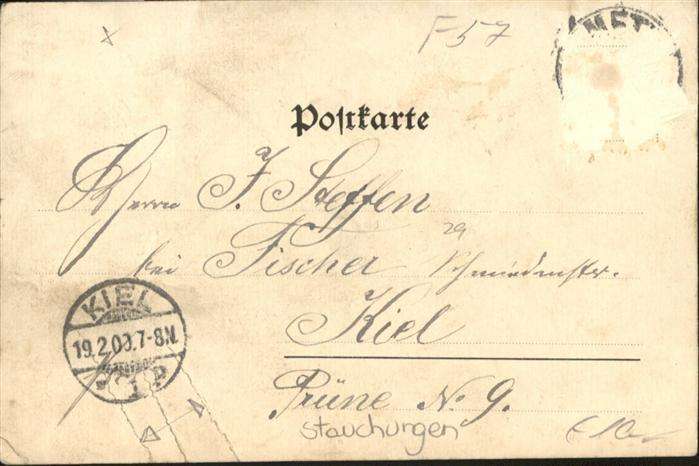 F 57
MET
Postkarte
Herrn J. Steffen
bei Fischer Schmiedemstr.
Kiel
KIEL
19.2.00.7-8N.
1 P
Prüne No 9.
Stauchungen